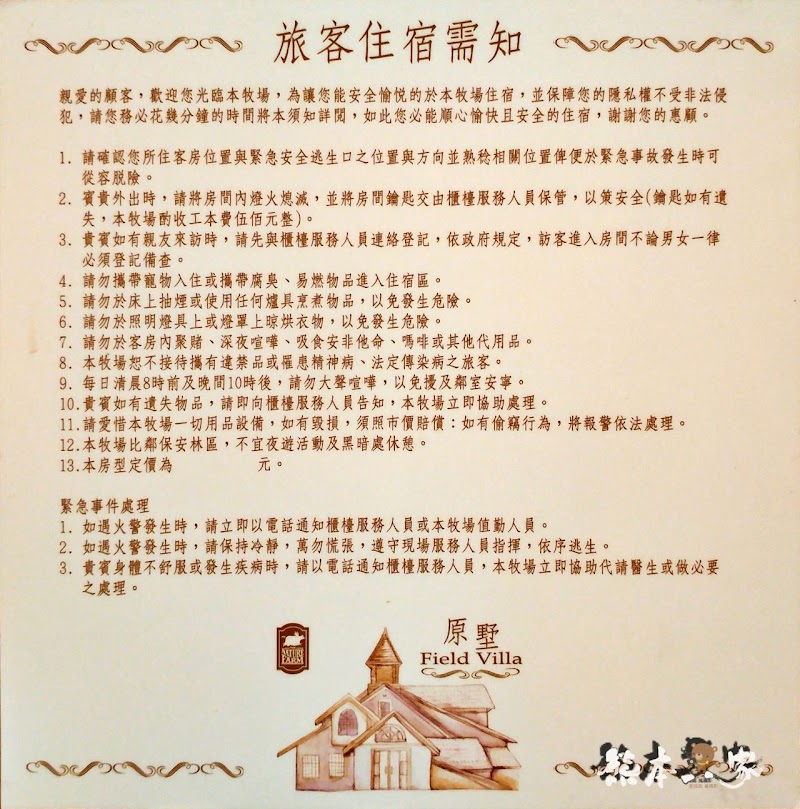 旅客住宿需知
親愛的顧客，歡迎您光臨本牧場，為讓您能安全愉悅的於本牧場住宿，並保障您的隱私權不受非法侵
犯，請您務必花幾分鐘的時間將本須知詳閱，如此您必能順心愉快且安全的住宿，謝謝您的惠顧。
1. 請確認您所住客房位置與緊急安全逃生口之位置與方向並熟稔相關位置俾便於緊急事故發生時可
從容脫險。
2. 賓貴外出時，請將房間內燈火熄滅，並將房間鑰匙交由櫃檯服務人員保管，以策安全(鑰匙如有遺
失，本牧場酌收工本費伍佰元整)。
3. 貴賓如有親友來訪時，請先與櫃檯服務人員連絡登記，依政府規定，訪客進入房間不論男女一律
必須登記備查。
4. 請勿攜帶寵物入住或攜帶腐臭、易燃物品進入住宿區。
5. 請勿於床上抽煙或使用任何爐具烹煮物品，以免發生危險。
6. 請勿於照明燈具上或燈罩上晾烘衣物，以免發生危險。
7. 請勿於客房內聚賭、深夜喧嘩、吸食安非他命、嗎啡或其他代用品。
8. 本牧場恕不接待攜有違禁品或罹患精神病、法定傳染病之旅客。
9. 每日清晨8時前及晚間10時後，請勿大聲喧嘩，以免擾及鄰室安寧。
10.貴賓如有遺失物品，請即向櫃檯服務人員告知，本牧場立即協助處理。
11.請愛惜本牧場一切用品設備，如有毀損，須照市價賠償：如有偷竊行為，將報警依法處理。
12.本牧場比鄰保安林區，不宜夜遊活動及黑暗處休憩。
13.本房型定價為 元。
緊急事件處理
1. 如遇火警發生時，請立即以電話通知櫃檯服務人員或本牧場值勤人員。
2. 如遇火警發生時，請保持冷靜，萬勿慌張，遵守現場服務人員指揮，依序逃生。
3. 貴賓身體不舒服或發生疾病時，請以電話通知櫃檯服務人員，本牧場立即協助代請醫生或做必要
之處理。
原墅
Field Villa
NATURE
FARM
熊本一家